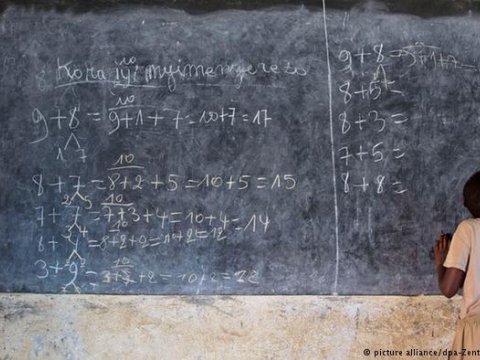 10
Kora iyi myimenyerezo
10
9+8 = 9+1+7 = 10+7 = 17
1 7
10
8+7 = 8+2+5 = 10+5 = 15
2 5 10
7+7 = 7+3+4 = 10+4 = 14
3 4 10
8+4 = 8+2+2 = 10+2 = 12
10
3+9 = +2 = 10+2 =
9+8 = 9+1+7 =
8+5 =
8+3 =
7+5 =
8+8 =
© picture alliance/dpa-Zent